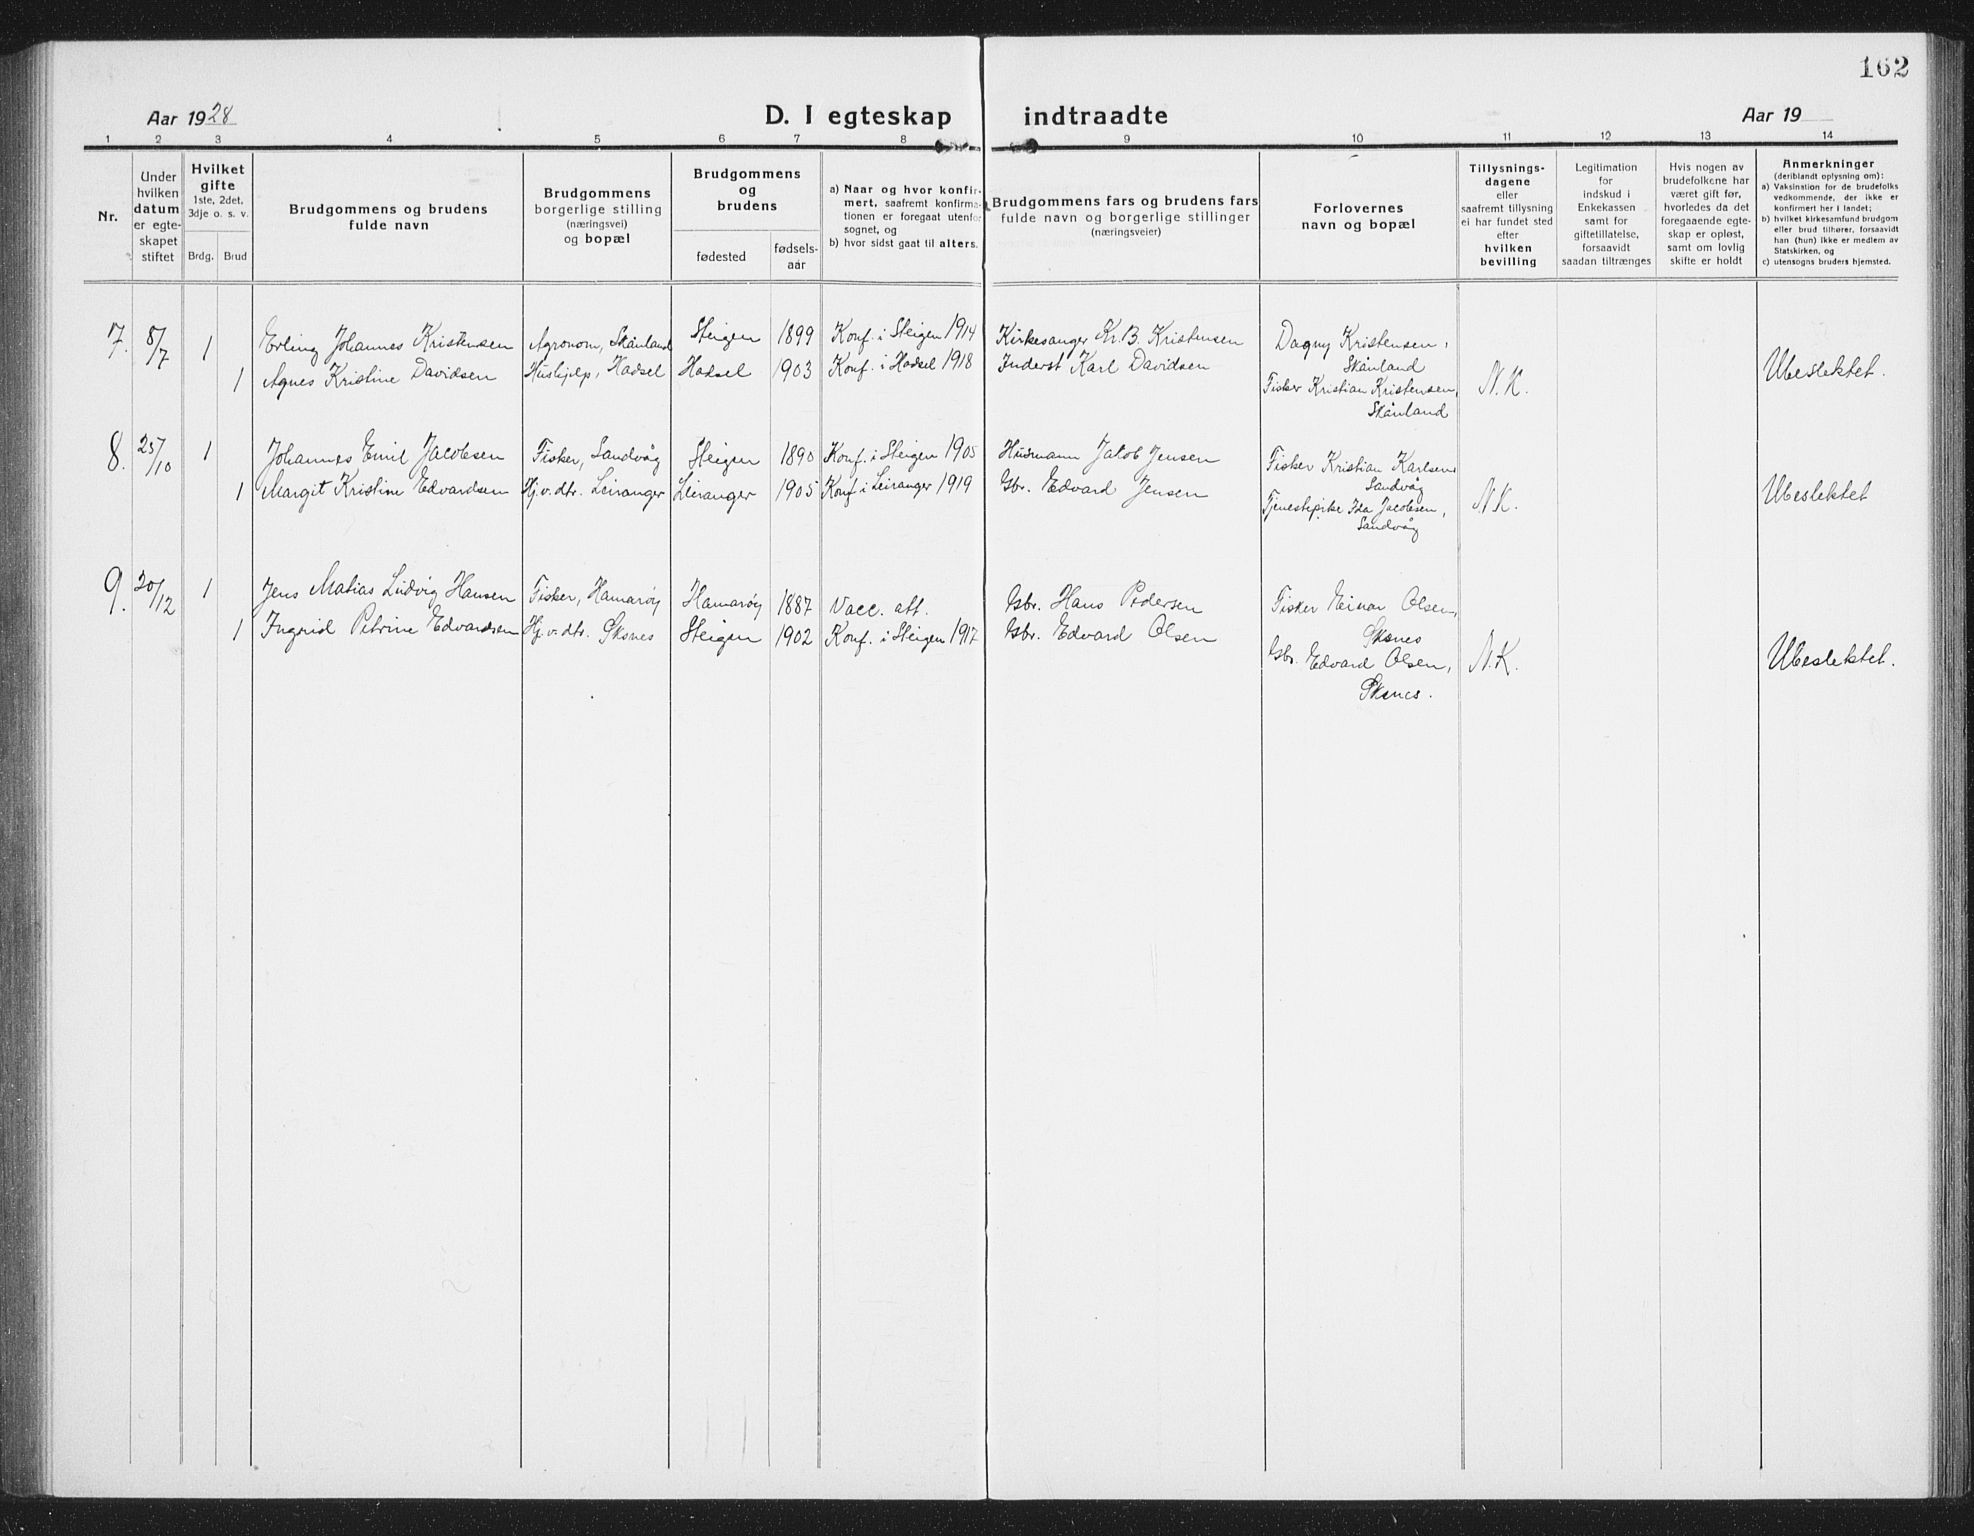 162
Aar 1928
D. I egteskap indtraadte
Aar 19
1 2 3 4 5 6 7 8 9 10 11 12 13 14
Nr.
Under
hvilken
datum
er egte-
skapet
stiftet
Hvilket
gifte
1ste, 2det,
3dje o. s. v.
Brdg. Brud
Brudgommens og brudens
fulde navn
Brudgommens
borgerlige stilling
(næringsvei)
og bopæl
Brudgommens
og
brudens
fødested
fødsels-
aar
a) Naar og hvor konfir-
mert, saafremt konfirma-
tionen er foregaat utenfor
sognet, og
b) hvor sidst gaat til alters.
Brudgommens fars og brudens fars
fulde navn og borgerlige stillinger
(næringsveier)
Forlovernes
navn og bopæl
Tillysnings-
dagene
eller
saafremt tillysning
ei har fundet sted
efter
hvilken
bevilling
Legitimation
for
indskud i
Enkekassen
samt for
giftetillatelse,
forsaavidt
saadan tiltrænges
Hvis nogen av
brudefolkene har
været gift før,
hvorledes da det
foregaaende egte-
skap er opløst,
samt om lovlig
skifte er holdt
Anmerkninger
(deriblandt oplysning om):
a) Vaksination for de brudefolks
vedkommende, der ikke er
konfirmert her i landet;
b) hvilket kirkesamfund brudgom
eller brud tilhører, forsaavidt
han (hun) ikke er medlem av
Statskirken, og
c) utensogns bruders hjemsted.
7. 8/7 1 Erling Johannes Kristensen Agronom, Skånland Steigen 1899 Konf. i Steigen 1914 Kirkesanger Kr. B. Kristensen Dagny Kristensen,
Skånland
1 Agnes Kristine Davidsen Hushjelp, Hadsel Hadsel 1903 Konf. i Hadsel 1918 Inderst Karl Davidsen
Fisker Kristian Kristensen, N.K. Ubeslektet.
Skånland
8. 25/10 1 Johannes Emil Jacobsen Fisker, Sandvåg Steigen 1890 Konf. i Steigen 1905 Husmann Jakob Jensen Fisker Kristian Karlsen
Sandvåg
1 Margit Kristine Edvardsen Hj.v.dtr. Leiranger Leiranger 1905 Konf i Leiranger 1919 Gbr. Edvard Jensen
Tjenestepike Ida Jacobsen, N.K. Ubeslektet
Sandvåg
9. 20/12 1 Jens Matias Ludvig Hansen Fisker, Hamarøy Hamarøy 1887 Vacc. att. Gbr. Hans Pedersen Fisker Einar Olsen,
Øksnes
1 Ingrid Petrine Edvardsen Hj.v.dtr. Øksnes Steigen 1902 Konf. i Steigen 1917 Gbr. Edvard Olsen
Gbr. Edvard Olsen, N.K. Ubeslektet.
Øksnes.